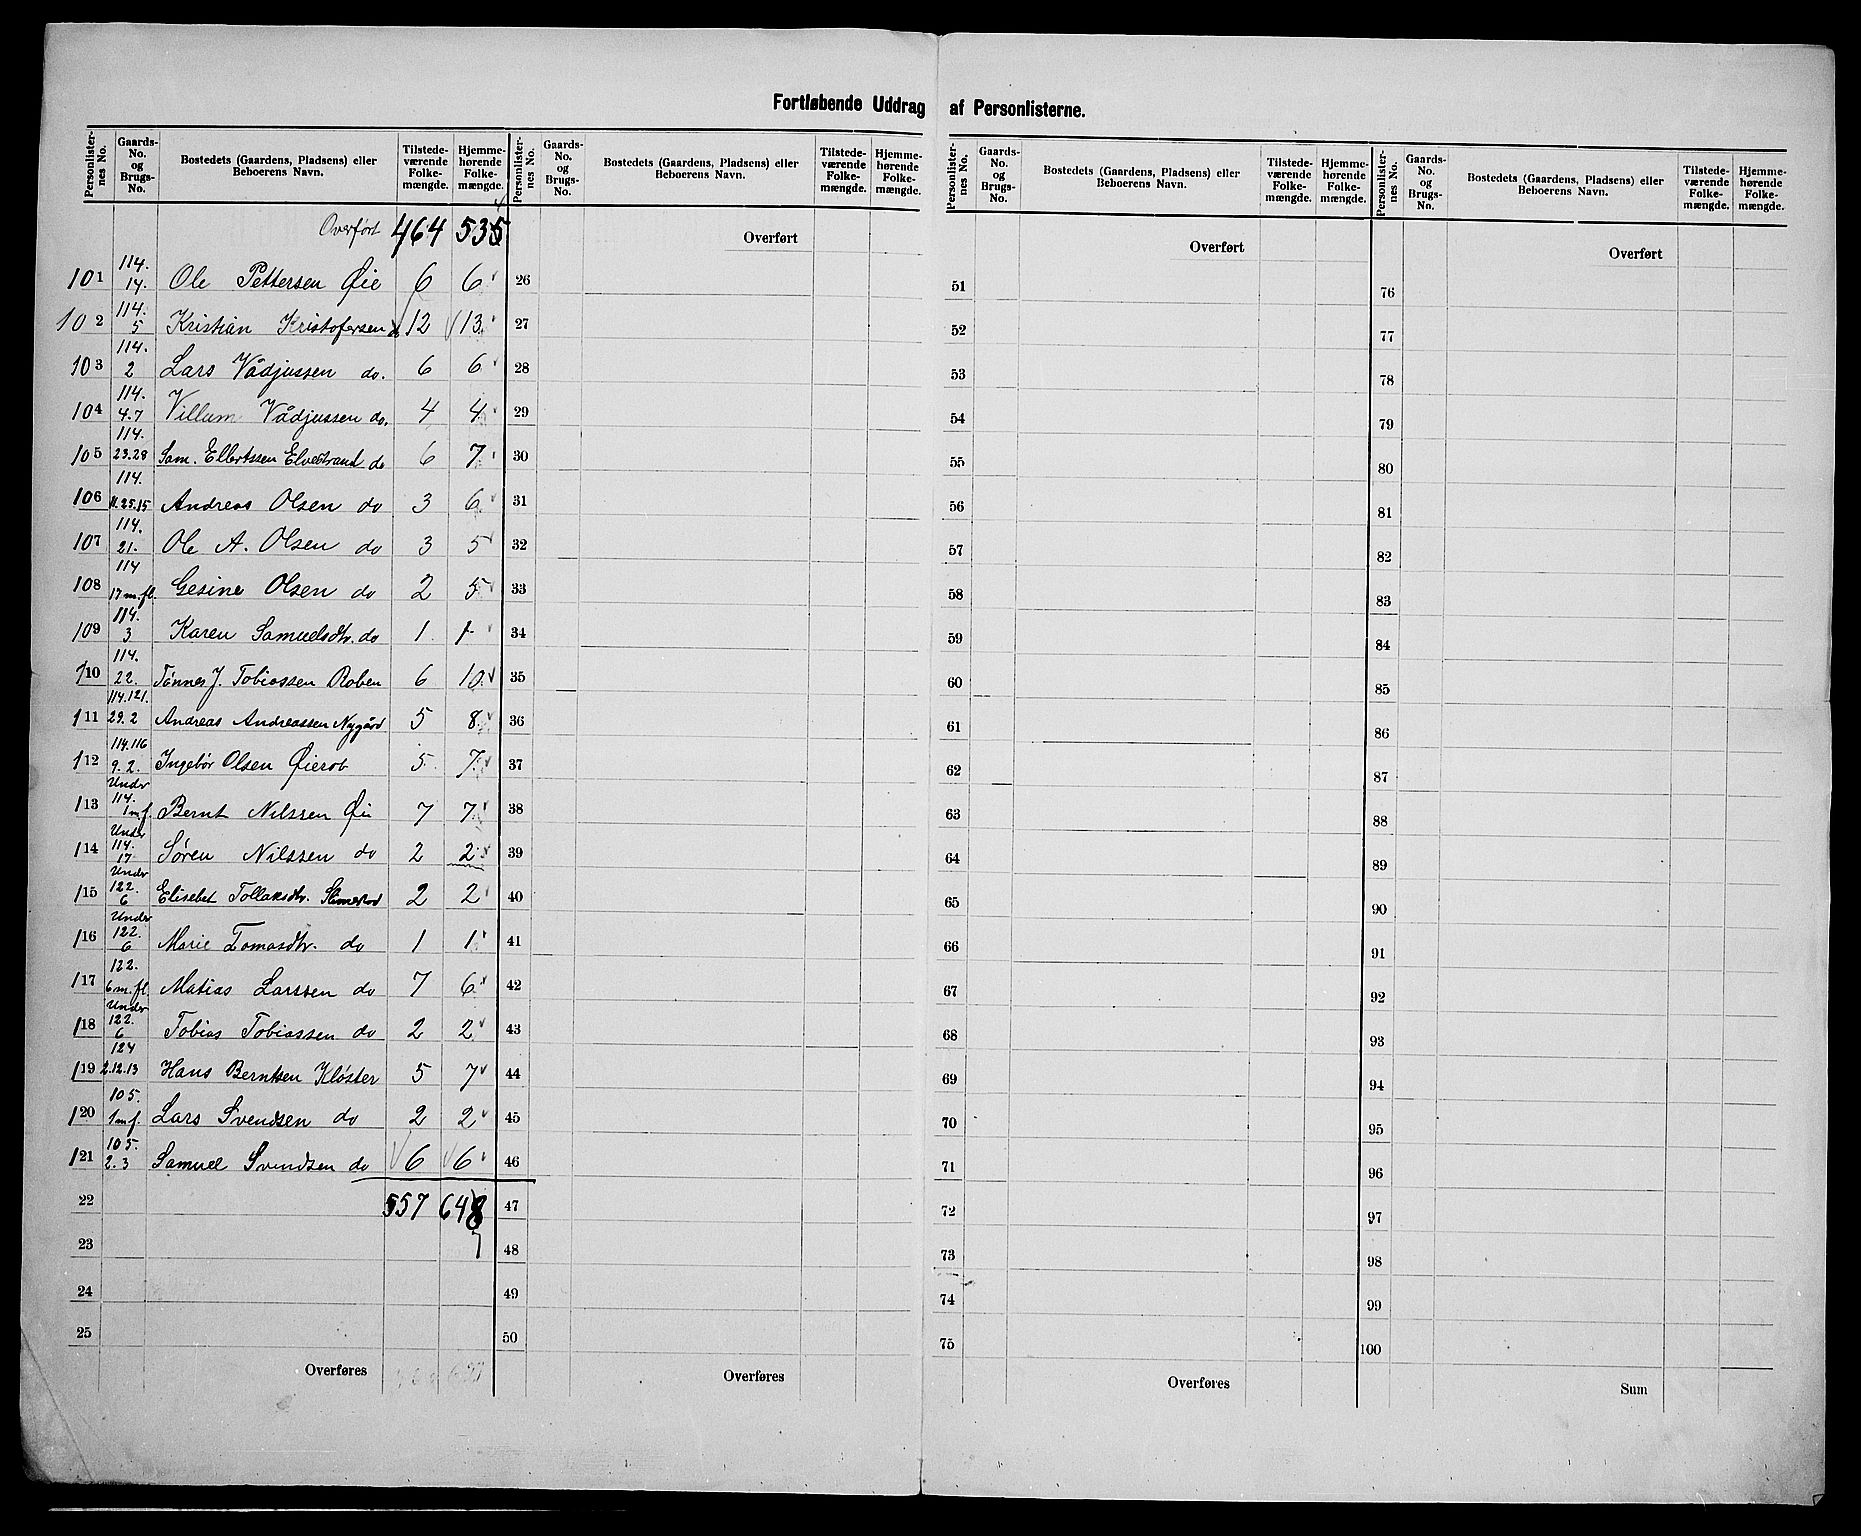 Fortløbende Uddrag af Personlisterne.
Personlister-nes No. Gaards-No. og Brugs-No. Bostedets (Gaardens, Pladsens) eller Beboerens Navn. Tilstede-værende Folke-mængde. Hjemme-hørende Folke-mængde.
Overført 464 535
101 114. 14. Ole Pettersen Øie 6 6
102 114. 5 Kristian Kristofersen 12 13
103 114. 2 Lars Vådjussen do. 6 6
104 114. 4.7 Villum Vådjussen do. 4 4
105 114. 23.28 Sam. Ellertssen Elvestrand do 6 7
106 114. 11.25.15 Andreas Olsen do 3 6
107 114. 21. Ole A. Olsen do 3 5
108 114 17 m.fl. Gesine Olsen do 2 5
109 114. 3 Karen Samuelsdtr. do 1 1
110 114. 22. Tönnes J. Tobiassen Roben 6 10
111 114.121. 29.2 Andreas Andreassen Nygård 5 8
112 114.116 9.2. Ingebör Olsen Øierob 5 7
113 Under 114. 1 m.f. Bernt Nilssen Øi 7 7
114 Under 114. 17 Søren Nilssen do 2 2
115 Under 122. 6 Elisebet Tollaksdtr. 2 2
116 Under 122. 6 Marie Tomasdtr. do 1 1
117 122. 6 m.fl. Matias Larssen do 7 6
118 Under 122. 6 Tobias Tobiassen do 2 2
119 124 2.12.13 Hans Berntsen Kløster 5 7
120 105. 1 m f. Lars Svendsen do 2 2
121 105. 2.3 Samuel Svendsen do 6 6
22 557 648
23 7
24
25
Overføres
Personlister-nes No. Gaards-No. og Brugs-No. Bostedets (Gaardens, Pladsens) eller Beboerens Navn. Tilstede-værende Folke-mængde. Hjemme-hørende Folke-mængde.
Overført
26
27
28
29
30
31
32
33
34
35
36
37
38
39
40
41
42
43
44
45
46
47
48
49
50
Overføres
Personlister-nes No. Gaards-No. og Brugs-No. Bostedets (Gaardens, Pladsens) eller Beboerens Navn. Tilstede-værende Folke-mængde. Hjemme-hørende Folke-mængde.
Overført
51
52
53
54
55
56
57
58
59
60
61
62
63
64
65
66
67
68
69
70
71
72
73
74
75
Overføres
Personlister-nes No. Gaards-No. og Brugs-No. Bostedets (Gaardens, Pladsens) eller Beboerens Navn. Tilstede-værende Folke-mængde. Hjemme-hørende Folke-mængde.
Overført
76
77
78
79
80
81
82
83
84
85
86
87
88
89
90
91
92
93
94
95
96
97
98
99
100
Sum